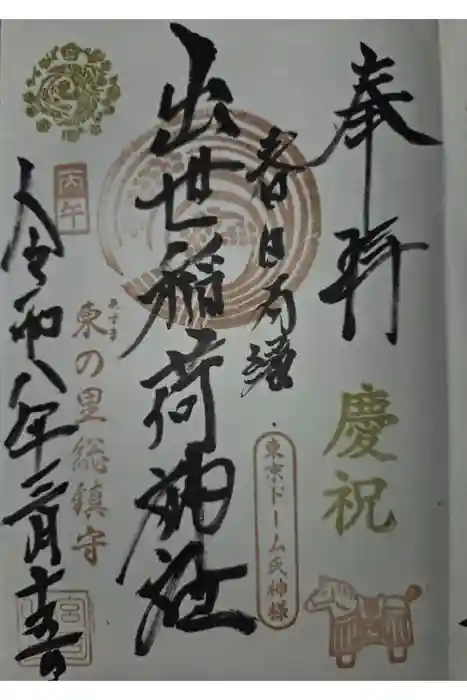 奉拝
慶祝
春日局縁
東京ドーム氏神様
出世稲荷神社
東の里総鎮守
あずま
丙午
令和八年二月十五日